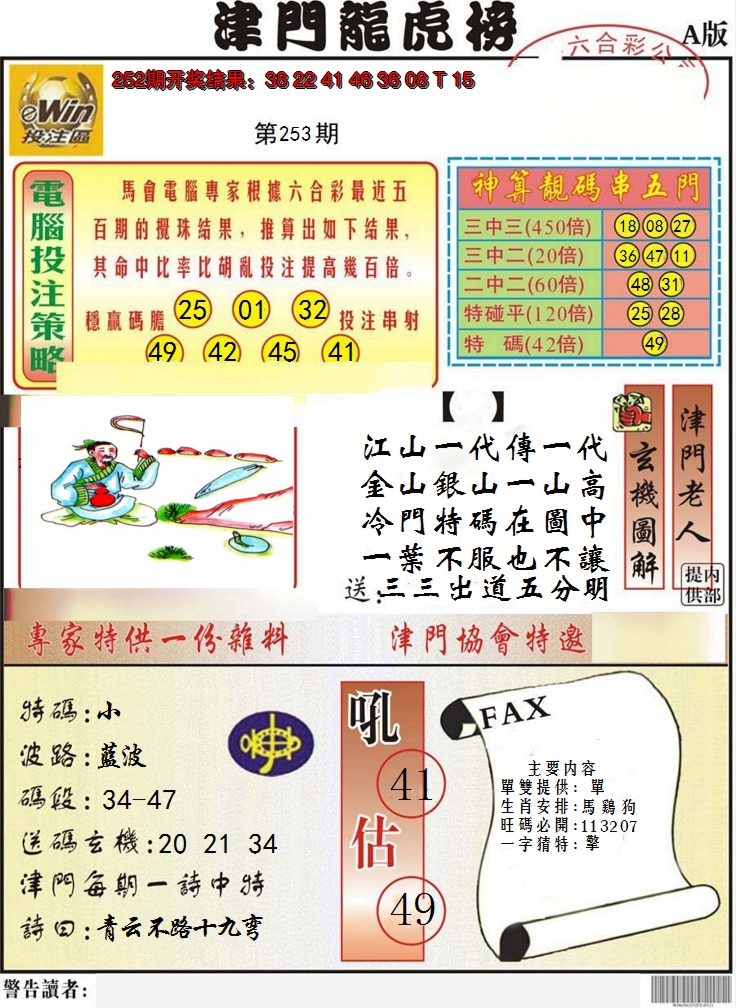 津門龍虎榜
六合彩公
A版
252期开奖结果：38 22 41 46 36 08 T 15
eWin
投注區
第253期
電腦投注策略
馬會電腦專家根據六合彩最近五
百期的攪珠结果，推算出如下结果，
其命中比率比胡亂投注提高幾百倍。
穩赢碼膽 25 01 32 投注串射
49 42 45 41
神算靚碼串五門
三中三(450倍) 18 08 27
三中二(20倍) 36 47 11
二中二(60倍) 48 31
特碰平(120倍) 25 28
特 碼(42倍) 49
【 】
江山一代傳一代
金山銀山一山高
冷門特碼在圖中
一葉不服也不讓
送:三三出道五分明
玄機圖解
津門老人
内部提供
專家特供一份雜料
津門協會特邀
特碼:小
波路:藍波
碼段:34-47
送碼玄機:20 21 34
津門每期一詩中特
詩曰:青云不路十九弯
吼
41
估
49
FAX
主要内容
單雙提供:單
生肖安排:馬鷄狗
旺碼必開:113207
一字猜特:擎
警告讀者: